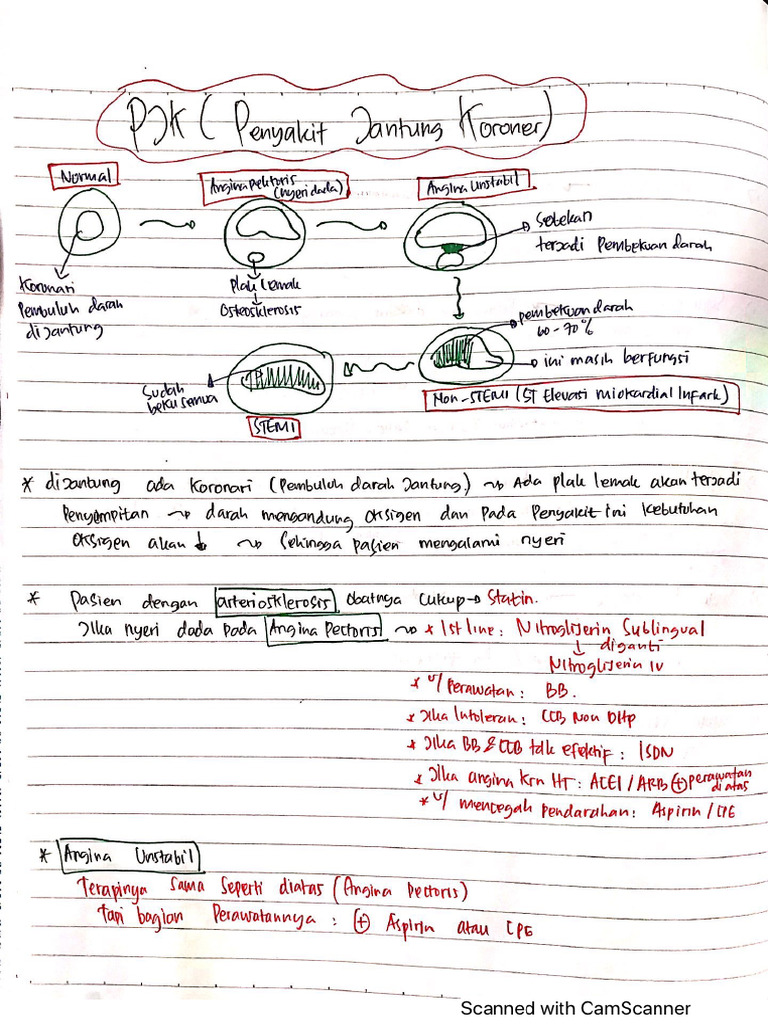 PJK ( Penyakit Jantung Koroner)
Normal
Angina Pektoris
(nyeri dada)
Angina Unstabil
Koronari
Pembuluh darah
dijantung
Plak lemak
↓
Osteosklerosis
Setekan
terjadi Pembekuan darah
pembekuan darah
60-70%
ini masih berfungsi
Non-STEMI (ST Elevasi miokardial Infark)
Sudah
beku semua
STEMI
* dijantung ada Koronari (Pembuluh darah Jantung) → Ada plak lemak akan terjadi
Penyempitan → darah mengandung oksigen dan pada Penyakit ini kebutuhan
oksigen akan ↓ → Sehingga pasien mengalami nyeri
* Pasien dengan arteriosklerosis, obatnya cukup → Statin.
Jika nyeri dada pada Angina Pectoris → * 1st line : Nitrogliserin Sublingual
↓ diganti
Nitrogliserin IV
* u/ Perawatan : BB.
* Jika Intoleran : CCB Non DHP
* Jika BB & CCB tdk efektif : ISDN
* Jika angina krn HT : ACEI / ARB (+) perawatan
diatas
* u/ mencegah pendarahan : Aspirin / CPG
* Angina Unstabil
Terapinya sama seperti diatas (Angina Pectoris)
Tapi bagian Perawatannya : (+) Aspirin atau CPG
Scanned with CamScanner